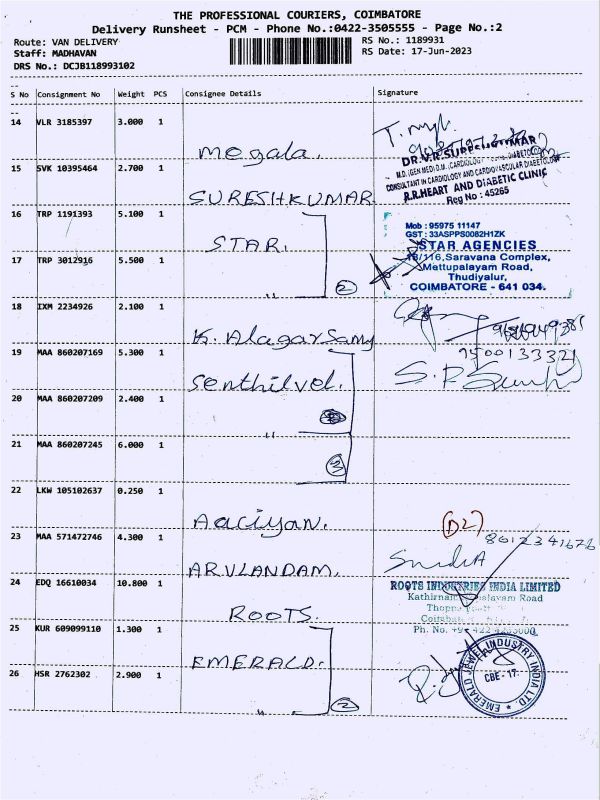 THE PROFESSIONAL COURIERS, COIMBATORE
Delivery Runsheet - PCM - Phone No.:0422-3505555 - Page No.:2
Route: VAN DELIVERY
RS No.: 1189931
Staff: MADHAVAN
RS Date: 17-Jun-2023
DRS No.: DCJB118993102
S No Consignment No Weight PCS Consignee Details Signature
14 VLR 3185397 3.000 1
megala.
DR.V.R.SURESHKUMAR
CONSULTANT IN CARDIOLOGY AND CARDIOVASCULAR DIABETOLOGY
R.R.HEART AND DIABETIC CLINIC
Reg No : 45265
15 SVK 10395464 2.700 1
SURESHKUMAR
16 TRP 1191393 5.100 1
STAR.
Mob : 95975 11147
GST : 33ASPPS0082H1ZK
STAR AGENCIES
/116,Saravana Complex,
Mettupalayam Road,
Thudiyalur,
COIMBATORE - 641 034.
17 TRP 3012916 5.500 1
2
18 IXM 2234926 2.100 1
K. Alagarsamy
9500133321
19 MAA 860207169 5.300 1
Senthilvel.
20 MAA 860207209 2.400 1
"
21 MAA 860207245 6.000 1
3
22 LKW 105102637 0.250 1
Aaciyan.
(D2)
23 MAA 571472746 4.300 1
ARULANDAM.
24 EDQ 16610034 10.800 1
ROOTS.
ROOTS INDUSTRIES INDIA LIMITED
Road
Ph. No.
25 KUR 609099110 1.300 1
EMERALD.
EMERALD JEWEL INDUSTRY INDIA LTD.
CBE - 17
26 HSR 2762302 2.900 1
"
2